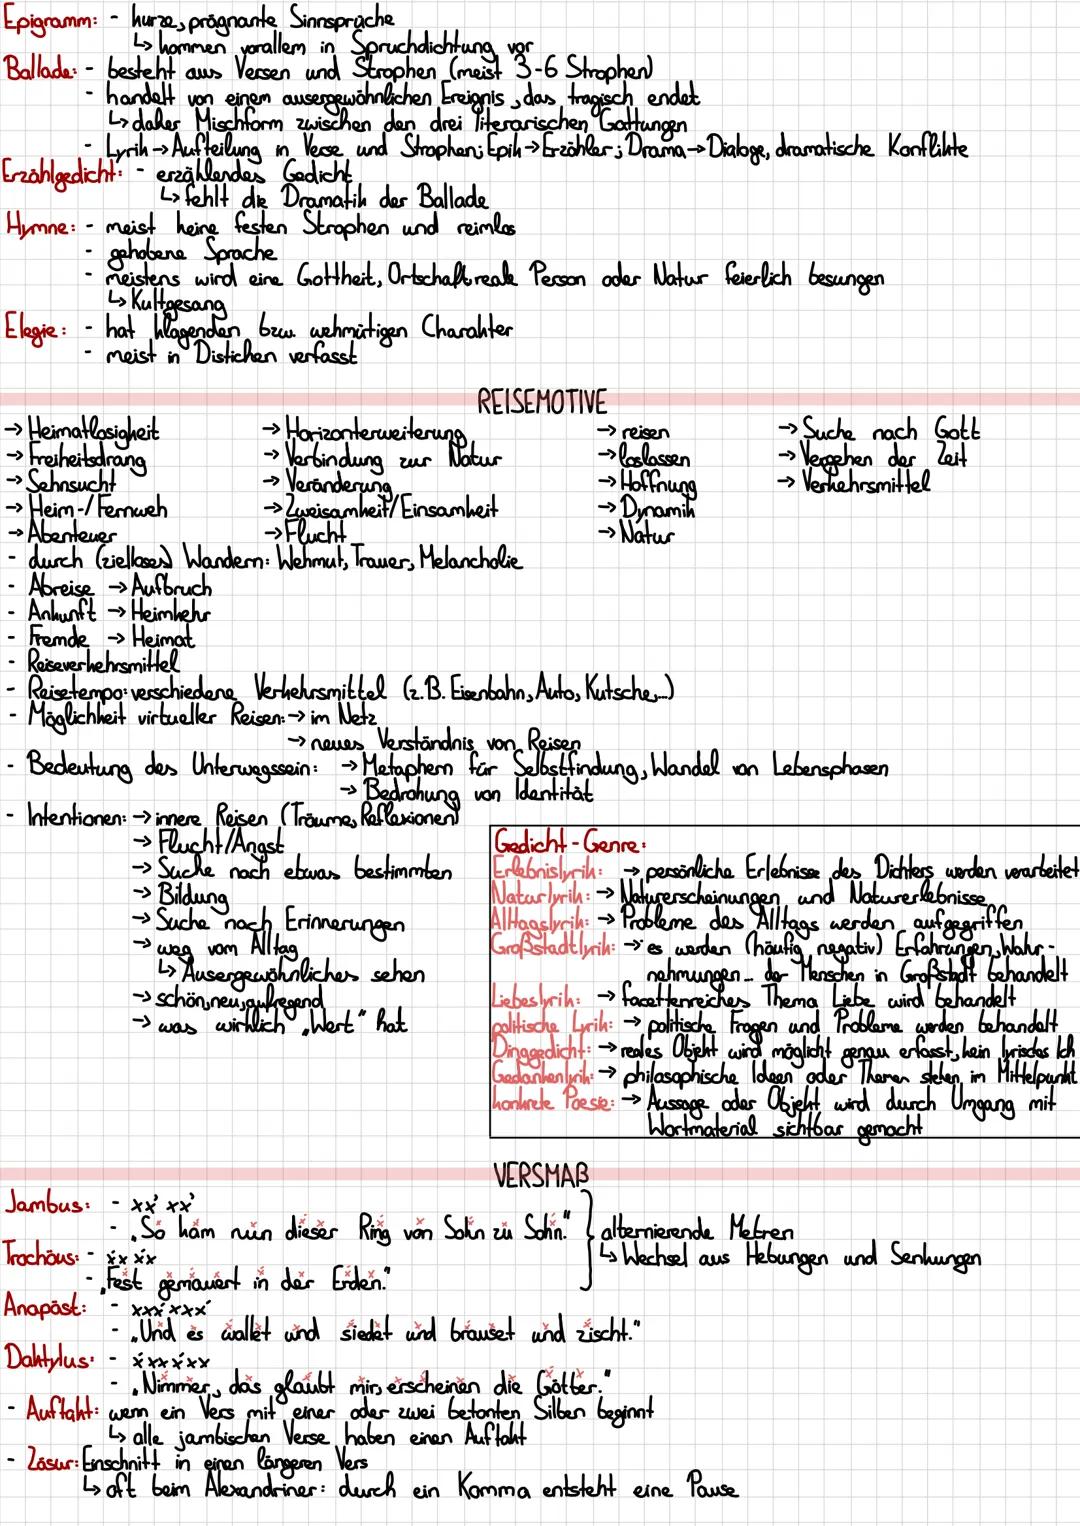 Epigramm: - kurze, prägnante Sinnsprüche
↳ kommen vorallem in Spruchdichtung vor
Ballade: - besteht aus Versen und Strophen (meist 3-6 Strophen)
- handelt von einem ausergewöhnlichen Ereignis, das tragisch endet
↳ daher Mischform zwischen den drei literarischen Gattungen
- Lyrik → Aufteilung in Verse und Strophen; Epik → Erzähler; Drama → Dialoge, dramatische Konflikte
Erzählgedicht: - erzählendes Gedicht
↳ fehlt die Dramatik der Ballade
Hymne: - meist keine festen Strophen und reimlos
- gehobene Sprache
- meistens wird eine Gottheit, Ortschaft, reale Person oder Natur feierlich besungen
↳ Kultgesang
Elegie: - hat klagenden bzw. wehmütigen Charakter
- meist in Distichen verfasst
REISEMOTIVE
→ Heimatlosigkeit → Horizonterweiterung → reisen → Suche nach Gott
→ Freiheitsdrang → Verbindung zur Natur → loslassen → Vergehen der Zeit
→ Sehnsucht → Veränderung → Hoffnung → Verkehrsmittel
→ Heim-/Fernweh → Zweisamkeit/Einsamkeit → Dynamik
→ Abenteuer → Flucht → Natur
- durch (zielloses) Wandern: Wehmut, Trauer, Melancholie
- Abreise → Aufbruch
- Ankunft → Heimkehr
- Fremde → Heimat
- Reiseverkehrsmittel
- Reisetempo: verschiedene Verkehrsmittel (z.B. Eisenbahn, Auto, Kutsche,...)
- Möglichkeit virtueller Reisen: → im Netz
→ neues Verständnis von Reisen
- Bedeutung des Unterwegssein: → Metaphern für Selbstfindung, Wandel von Lebensphasen
→ Bedrohung von Identität
- Intentionen: → innere Reisen (Träume, Reflexionen)
→ Flucht/Angst
→ Suche nach etwas bestimmten
→ Bildung
→ Suche nach Erinnerungen
→ weg vom Alltag
↳ Ausergewöhnliches sehen
→ schön, neu, aufregend
→ was wirklich „Wert" hat
Gedicht-Genre:
Erlebnislyrik: → persönliche Erlebnisse des Dichters werden verarbeitet
Naturlyrik: → Naturerscheinungen und Naturerlebnisse
Alltagslyrik: → Probleme des Alltags werden aufgegriffen
Großstadtlyrik: → es werden (häufig negativ) Erfahrungen, Wahr-
nehmungen... der Menschen in Großstadt behandelt
Liebeslyrik: → facettenreiches Thema Liebe wird behandelt
politische Lyrik: → politische Fragen und Probleme werden behandelt
Dinggedicht: → reales Objekt wird möglicht genau erfasst, kein lyrisches Ich
Gedankenlyrik: → philosophische Ideen oder Themen stehen im Mittelpunkt
konkrete Poesie: → Aussage oder Objekt wird durch Umgang mit
Wortmaterial sichtbar gemacht
VERSMAẞ
Jambus: - xx́ xx́
- „So kam nun dieser Ring von Sohn zu Sohn." } alternierende Metren
Trochäus: - x́x x́x ↳ Wechsel aus Hebungen und Senkungen
- „Fest gemauert in der Erden."
Anapäst: - xxx́ xxx́
- „Und es wallet und siedet und brauset und zischt."
Daktylus: - x́xxx́xx
- „Nimmer, das glaubt mir, erscheinen die Götter."
- Auftakt: wenn ein Vers mit einer oder zwei betonten Silben beginnt
↳ alle jambischen Verse haben einen Auftakt
- Zäsur: Einschnitt in einen längeren Vers
↳ oft beim Alexandriner: durch ein Komma entsteht eine Pause